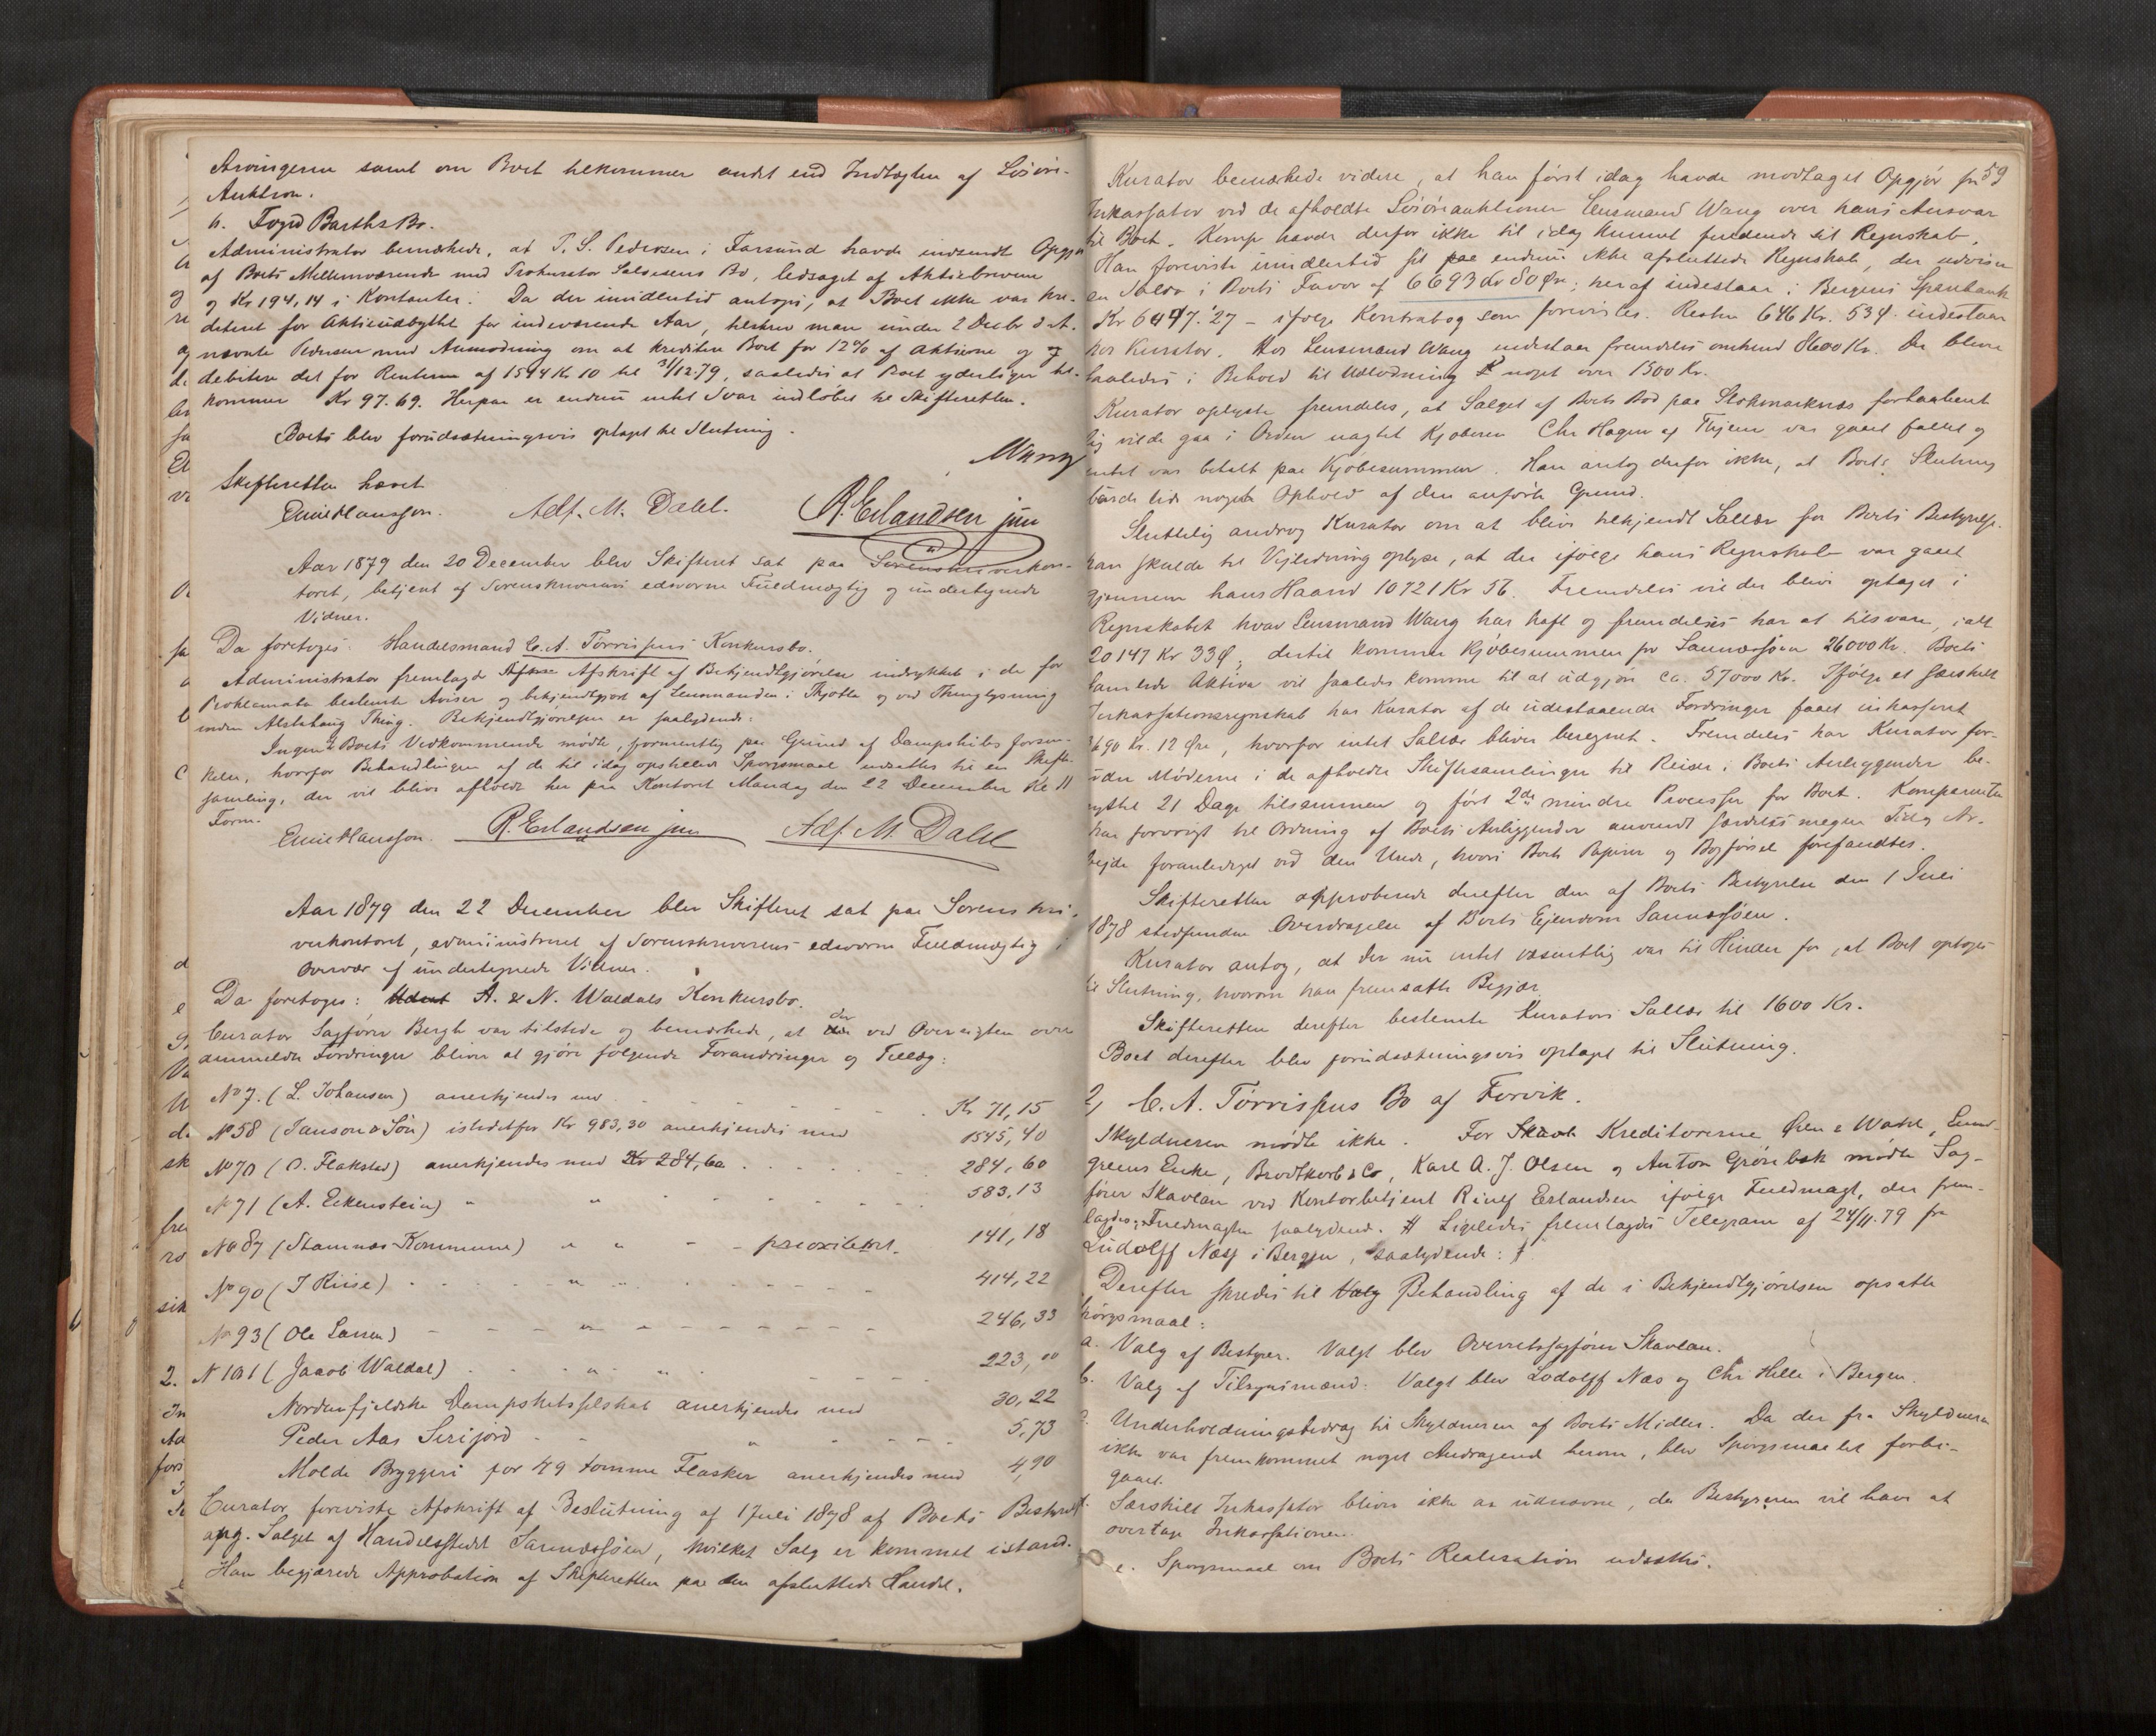 Arvingerne samt om Boet tilkommer andet end Indtægten af Løsøre-
Auktion.
6. Foged Barths Bo.
Administrator bemærkede, at P. S. Pedersen i Farsund havde indsendt Opgjør
af Boets Mellemværende med Prokurator Salvesens Bo, ledsaget af Aktiebrevene
og Kr 194,14 i Kontanter. Da der imidlertid antoges, at Boet ikke var kre-
diteret for Aktieudbyttet for indeværende Aar, tilskrev man under 2 Decbr d. A.
nævnte Pedersen med Anmodning om at kreditere Boet for 12% af Aktierne og
debitere det for Renterne af 1544 Kr 10 til 31/12 79, saaledes at Boet yderligere til-
kommer Kr 97.69. Herpaa er endnu intet Svar indløbet til Skifteretten.
Boets blev forudsætningsvis optaget til Slutning.
Skifteretten hævet
Emil Hansson. Adf. M. Dahl. R. Erlandsen jun
Aar 1879 den 20 December blev Skifteret sat paa Sorenskriverkon-
toret, betjent af Sorenskriverens edsvorne Fuldmægtig og undertegnede
Vidner.
Da foretoges: Handelsmand C. A. Tørrissens Konkursbo.
Administrator fremlagde Afskrift af Bekjendtgjørelse indrykket i de for
Proklamata bestemte Aviser og bekjendtgjort af Lensmanden i Tjøtta og ved Thinglysning
inden Alstahaug Thing. Bekjendtgjørelsen er saalydende:
Ingen Boets Vedkommende mødte, formentlig paa Grund af Dampskibs forsin-
kelse, hvorfor Behandlingen af de til idag opstillede Spørgsmaal udsattes til en Skifte-
samling, der vil blive afholdt her paa Kontoret Mandag den 22 December Kl 11
Form.
Emil Hansson. R. Erlandsen jun Adf. M. Dahl
Aar 1879 den 22 December blev Skifteret sat paa Sorenskri-
verkontoret, administreret af Sorenskriverens edsvorne Fuldmægtig i
Overvær af undertegnede Vidner.
Da foretoges: A. & N. Waldals Konkursbo.
Curator Sagfører Bergh var tilstede og bemærkede, at der ved Oversigten over
anmeldte Fordringer bliver at gjøre følgende Forandringer og Tillæg:
No 7. (L. Johansen) anerkjendes med Kr 71,15
No 58 (Janson & Søn) istedetfor Kr 983,30 anerkjendes med 1545,40
No 70 (O. Flakstad) anerkjendes med Kr 284,60 284,60
No 71 (A. Eckenstein) " " 583,13
No 87 (Stamnæs Kommune) " " - prioritert. 141,18
No 90 (J Riise) " " 414,22
No 93 (Ole Larsen) " " 246,33
N 101 (Jacob Waldal) " " 223,00
Nordenfjeldske Dampskibsselskab anerkjendes med 30,22
Peder Aas Serijord " 5,73
Molde Bryggeri for 49 tomme Flasker anerkjendes med 4,90
Curator foreviste Afskrift af Beslutning af 1 Juli 1878 af Boets Bestyrelse
ang. Salget af Handelsstedet Sannæssøen, hvilket Salg er kommet istand.
Han begjærede Approbation af Skifteretten paa den afsluttede Handel.
59
Kurator bemærkede videre, at han først idag havde modtaget Opgjør fra
Inkassator ved de afholdte Løsøreauktioner Lensmand Wang over hans Ansvar
til Boet. Komp havde derfor ikke til idag kunnet fuldende sit Regnskab.
Han foreviste imidlertid sit endnu ikke afsluttede Regnskab, der udviser
en Saldo i Boets Favør af 6693 Kr 80 Øre; heraf indestaar i Bergens Sparebank
Kr 6047.27 - ifølge Kontrabog som forevistes. Resten 646 Kr. 53 Ø. indestaar
hos Kurator. Hos Lensmand Wang indestaar fremdeles omtrent 8600 Kr. Der bliver
saaledes i Behold til Udlodning noget over 1500 Kr.
Kurator oplyste fremdeles, at Salget af Boets Bod paa Stokmarknæs forhaabent-
lig vilde gaa i Orden uagtet Kjøberen Chr Hagen af Thjem var gaaet fallit og
intet var betalt paa Kjøbesummen. Han antog derfor ikke, at Boets Slutning
burde lide noget Ophold af den anførte Grund.
Sluttelig androg Kurator om at blive tilkjendt Sallær for Boets Bestyrelse.
Han skulde til Vejledning oplyse, at der ifølge hans Regnskab var gaaet
gjennem hans Haand 10721 Kr 56. Fremdeles vil der blive optaget i
Regnskabet hvad Lensmand Wang har havt og fremdeles har at tilsvare, ialt
20147 Kr 33 Ø; dertil kommer Kjøbesummen for Sannæssøen 26000 Kr. Boets
samlede Aktiva vil saaledes komme til at udgjøre ca. 57000 Kr. Ifølge et særskilt
Inkassationsregnskab har Kurator af de udestaaende Fordringer faaet inkasseret
3690 Kr. 12 Øre, hvorfor intet Sallær bliver beregnet. Fremdeles har Kurator for-
uden Møderne i de afholdte Skiftesamlinger til Reiser i Boets Anliggender be-
nyttet 21 Dage tilsammen og ført 2de mindre Processer for Boet. Komparenten
har forøvrigt til Ordning af Boets Anliggender anvendt særdeles megen Tid og Ar-
bejde foranlediget ved den Uorden, hvori Boets Papirer og Bogførsel forefandtes.
Skifteretten approberede derefter den af Boets Bestyrelse den 1 Juli
1878 stedfundne Overdragelse af Boets Ejendom Sannæssøen.
Kurator antog, at der nu intet væsentlig var til Hinder for, at Boet optoges
til Slutning, hvorom han fremsatte Begjær
Skifteretten derefter bestemte Kurators Sallær til 1600 Kr.
Boet derefter blev forudsætningsvis optaget til Slutning.
2, C. A. Tørrissens Bo af Forvik.
Skyldneren mødte ikke. For Kreditorerne & Wahl, Lund-
greens Enke, Brodtkorb & Co, Karl A. J. Olsen og Anton Grønbæk mødte Sag-
fører Skavlan ved Kontorbetjent Rinef Erlandsen ifølge Fuldmagt, der frem-
lagdes; Fuldmagten saalydende. # Ligeledes fremlagdes Telegram af 24/11.79 fra
Ludolff Næss i Bergen, saalydende: †
Derefter skredes til Valg Behandling af de i Bekjendtgjørelsen opsatte
Spørgsmaal:
a. Valg af Bestyrer. Valgt blev Overretssagfører Skavlan.
b. Valg af Tilsynsmænd. Valgt blev Lodolff Næs og Chr Hille i Bergen.
c. Underholdningsbidrag til Skyldneren af Boets Midler. Da der fra Skyldneren
ikke var fremkommet noget Andragende herom, blev Spørgsmaalet forbi-
gaaet.
d. Særskilt Inkassator bliver ikke at udnævne, da Bestyreren vil have at
overtage Inkassationen.
e. Spørgsmaal om Boets Realisation udsattes.